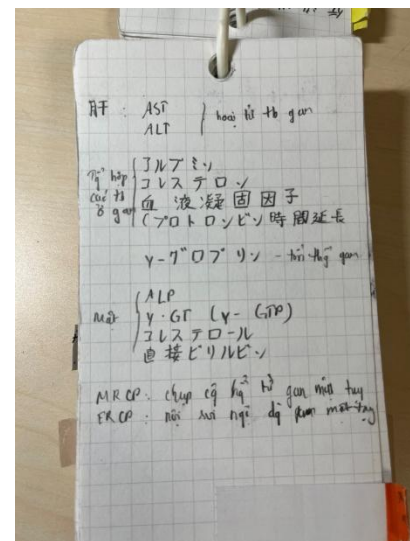 肝 : AST
ALT
hoại tử tb gan
Tổng hợp
của tb
ở gan
アルブミン
コレステロン
血液凝固因子
(プロトロンビン時間延長
γ-グロブリン - tổn thg gan
Mật
ALP
γ-GT (γ-GTP)
コレステロール
直接ビリルビン
MRCP: chụp cộng hg từ gan mật tụy
ERCP: nội soi ngược dg mật tụy